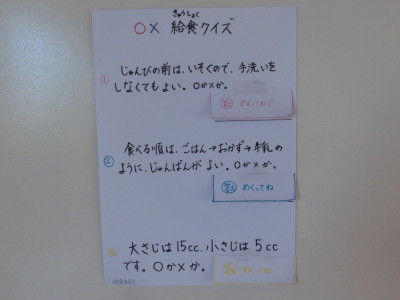 きゅうしょく
○× 給食クイズ
① じゅんびの前は、いそぐので、手洗いを
しなくてもよい。○か×か。
答え めくってね
② 食べる順は、ごはん→おかず→牛乳の
ように、じゅんばんがよい。○か×か。
答え めくってね
③ 大さじは15cc、小さじは5cc
です。○か×か。
答え めくってね